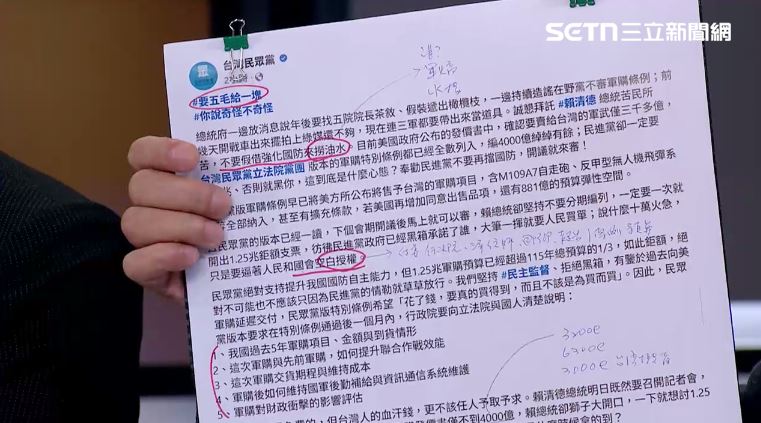 SETN三立新聞網
台灣民眾黨
#要五毛給一塊
#你說奇怪不奇怪
總統府一邊放消息說年後要找五院院長茶敘、假裝遞出橄欖枝，一邊持續造謠在野黨不審軍購條例；前
幾天開戰車出來擺拍上綠媒還不夠，現在連三軍都要帶出來當道具。誠懇拜託 #賴清德 總統苦民所
苦，不要假借強化國防來撈油水。目前美國政府公布的發價書中，確認要賣給台灣的軍武僅三千多億，
台灣民眾黨立法院黨團 版本的軍購特別條例都已經全數列入，編4000億綽綽有餘；民進黨卻一定要
兆、否則就黑你，這到底是什麼心態？奉勸民進黨不要再擋國防，開議就來審！
黨版軍購條例早已將美方所公布將售予台灣的軍購項目，含M109A7自走砲、反甲型無人機飛彈系
等全部納入，甚至有擴充條款，若美國再增加同意出售品項，還有881億的預算彈性空間。
民眾黨的版本已經一讀，下個會期開議後馬上就可以審，賴總統卻堅持不要分期編列，一定要一次就
開出1.25兆鉅額支票，彷彿民進黨政府已經黑箱承諾了誰，大筆一揮就要人民買單；說什麼十萬火急，
只是要逼著人民和國會空白授權。
民眾黨絕對支持提升我國國防自主能力，但1.25兆軍購預算已經超過115年總預算的1/3，如此鉅額，絕
對不可能也不應該只因為民進黨的情勒就草草放行。我們堅持 #民主監督、拒絕黑箱，有鑒於過去向美
軍購延遲交付，民眾黨版特別條例希望「花了錢，要真的買得到，而且不該是為買而買」。因此，民眾
黨版本要求在特別條例通過後一個月內，行政院要向立法院與國人清楚說明：
1、我國過去5年軍購項目、金額與到貨情形
2、這次軍購與先前軍購，如何提升聯合作戰效能
3、這次軍購交貨期程與維持成本
4、軍購後如何維持國軍後勤補給與資訊通信系統維護
5、軍購對財政衝擊的影響評估
但台灣人的血汗錢，更不該任人予取予求。賴清德總統明日既然要召開記者會，
發價書僅不到4000億，賴總統卻獅子大開口，一下就想討1.25